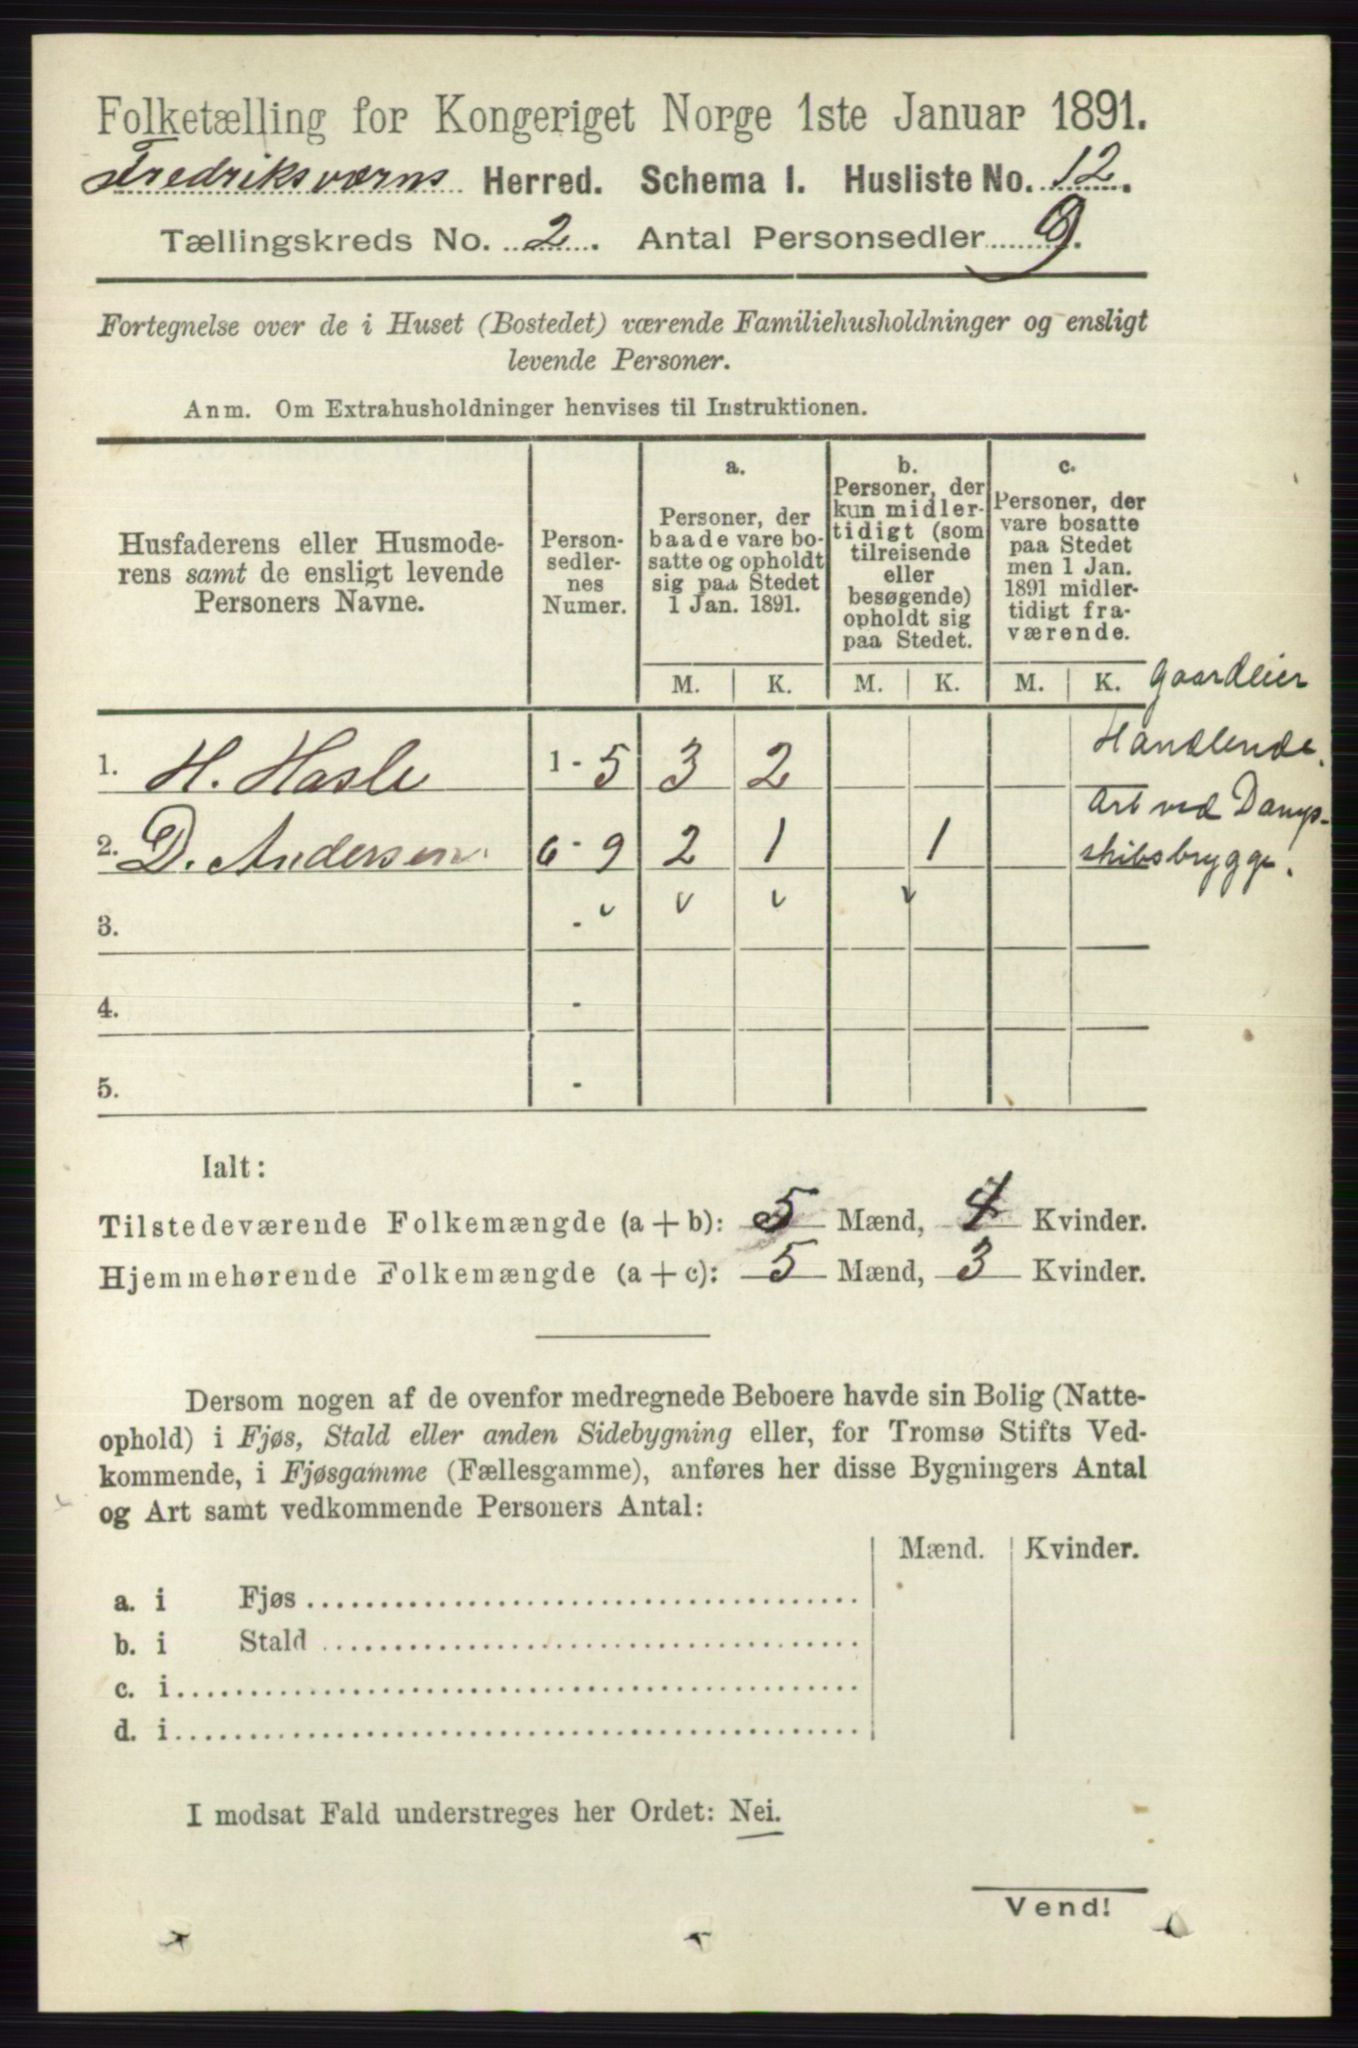 Folketælling for Kongeriget Norge 1ste Januar 1891.
Fredriksværns Herred. Schema I. Husliste No. 12.
Tællingskreds No. 2. Antal Personsedler 9.
Fortegnelse over de i Huset (Bostedet) værende Familiehusholdninger og ensligt
levende Personer.
Anm. Om Extrahusholdninger henvises til Instruktionen.
Husfaderens eller Husmode-
rens samt de ensligt levende
Personers Navne.
Person-
sedler-
nes
Numer.
a.
Personer, der
baade vare bo-
satte og opholdt
sig paa Stedet
1 Jan. 1891.
b.
Personer, der
kun midler-
tidigt (som
tilreisende
eller
besøgende)
opholdt sig
paa Stedet.
c.
Personer, der
vare bosatte
paa Stedet
men 1 Jan.
1891 midler-
tidigt fra-
værende.
M. K. M. K. M. K. Gaardeier
1. H. Hasle 1 - 5 3 2 Handlende.
2. D. Andersen 6 - 9 2 1 1 Arb ved Damp-
skibsbrygge.
3. -
4. -
5. -
Ialt:
Tilstedeværende Folkemængde (a + b): 5 Mænd, 4 Kvinder.
Hjemmehørende Folkemængde (a + c): 5 Mænd, 3 Kvinder.
Dersom nogen af de ovenfor medregnede Beboere havde sin Bolig (Natte-
ophold) i Fjøs, Stald eller anden Sidebygning eller, for Tromsø Stifts Ved-
kommende, i Fjøsgamme (Fællesgamme), anføres her disse Bygningers Antal
og Art samt vedkommende Personers Antal:
Mænd. Kvinder.
a. i Fjøs
b. i Stald
c. i
d. i
I modsat Fald understreges her Ordet: Nei.
Vend!